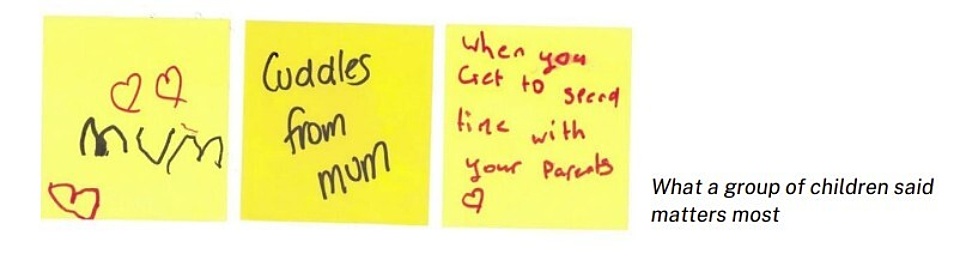 mum
Cuddles
from
mum
When you
Get to spend
time with
your Parents
What a group of children said
matters most